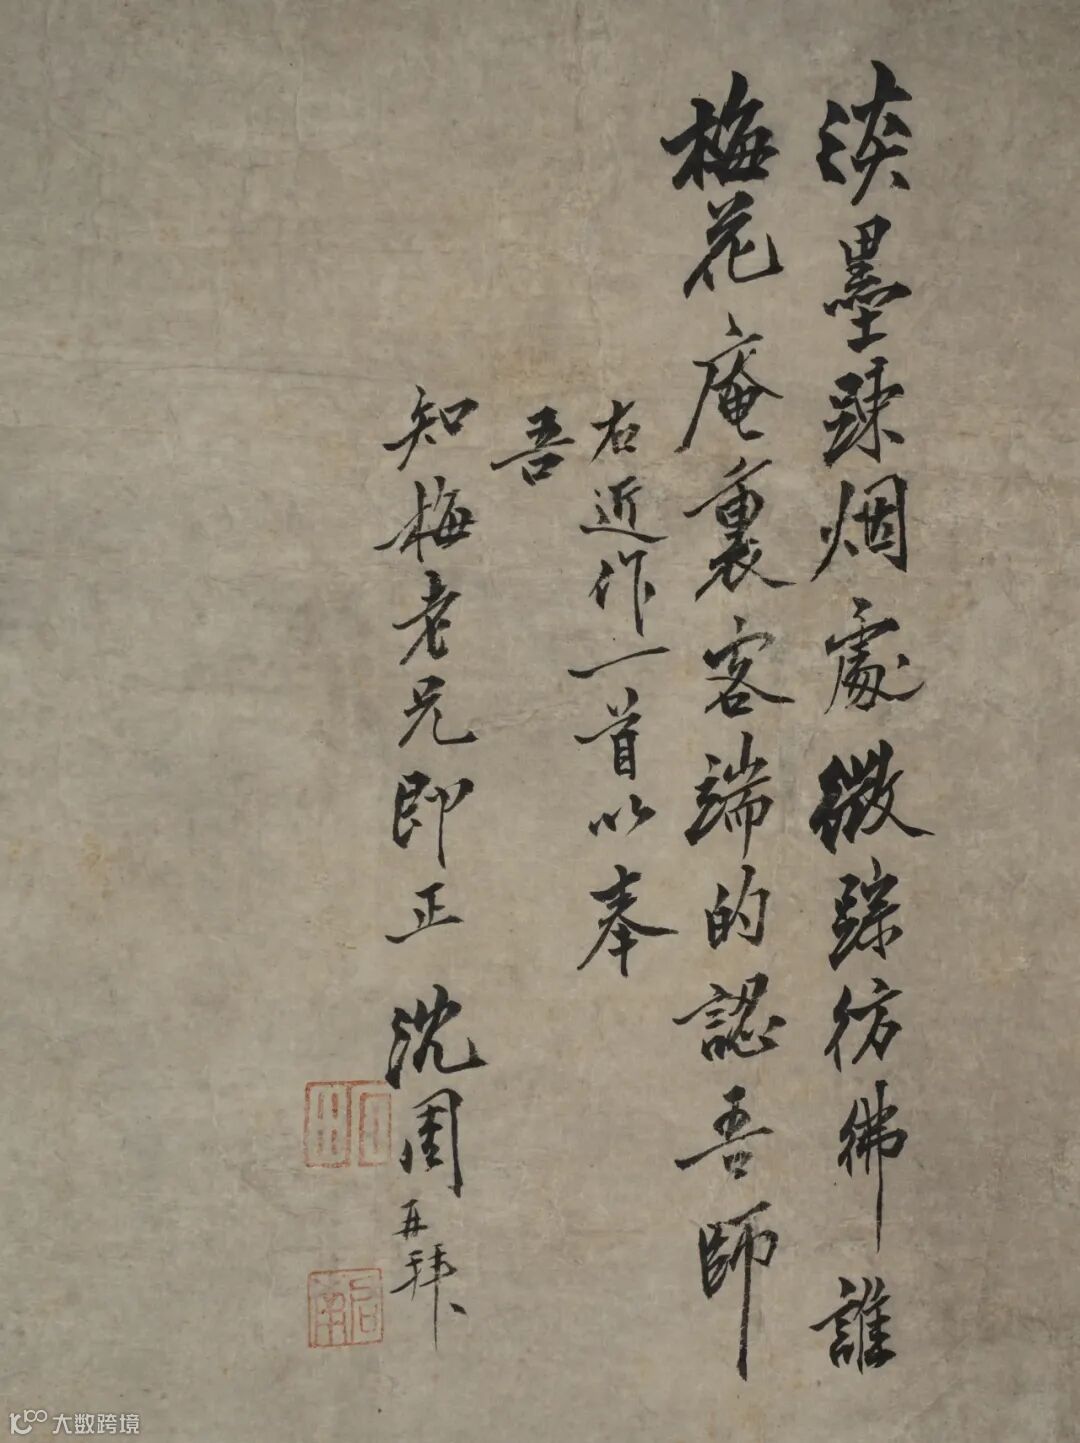 淡墨踈烟處微踪彷彿誰
梅花庵裏客端的認吾師
右近作一首以奉
吾
知梅老兄即正 沈周再拜
啟南
大数跨境